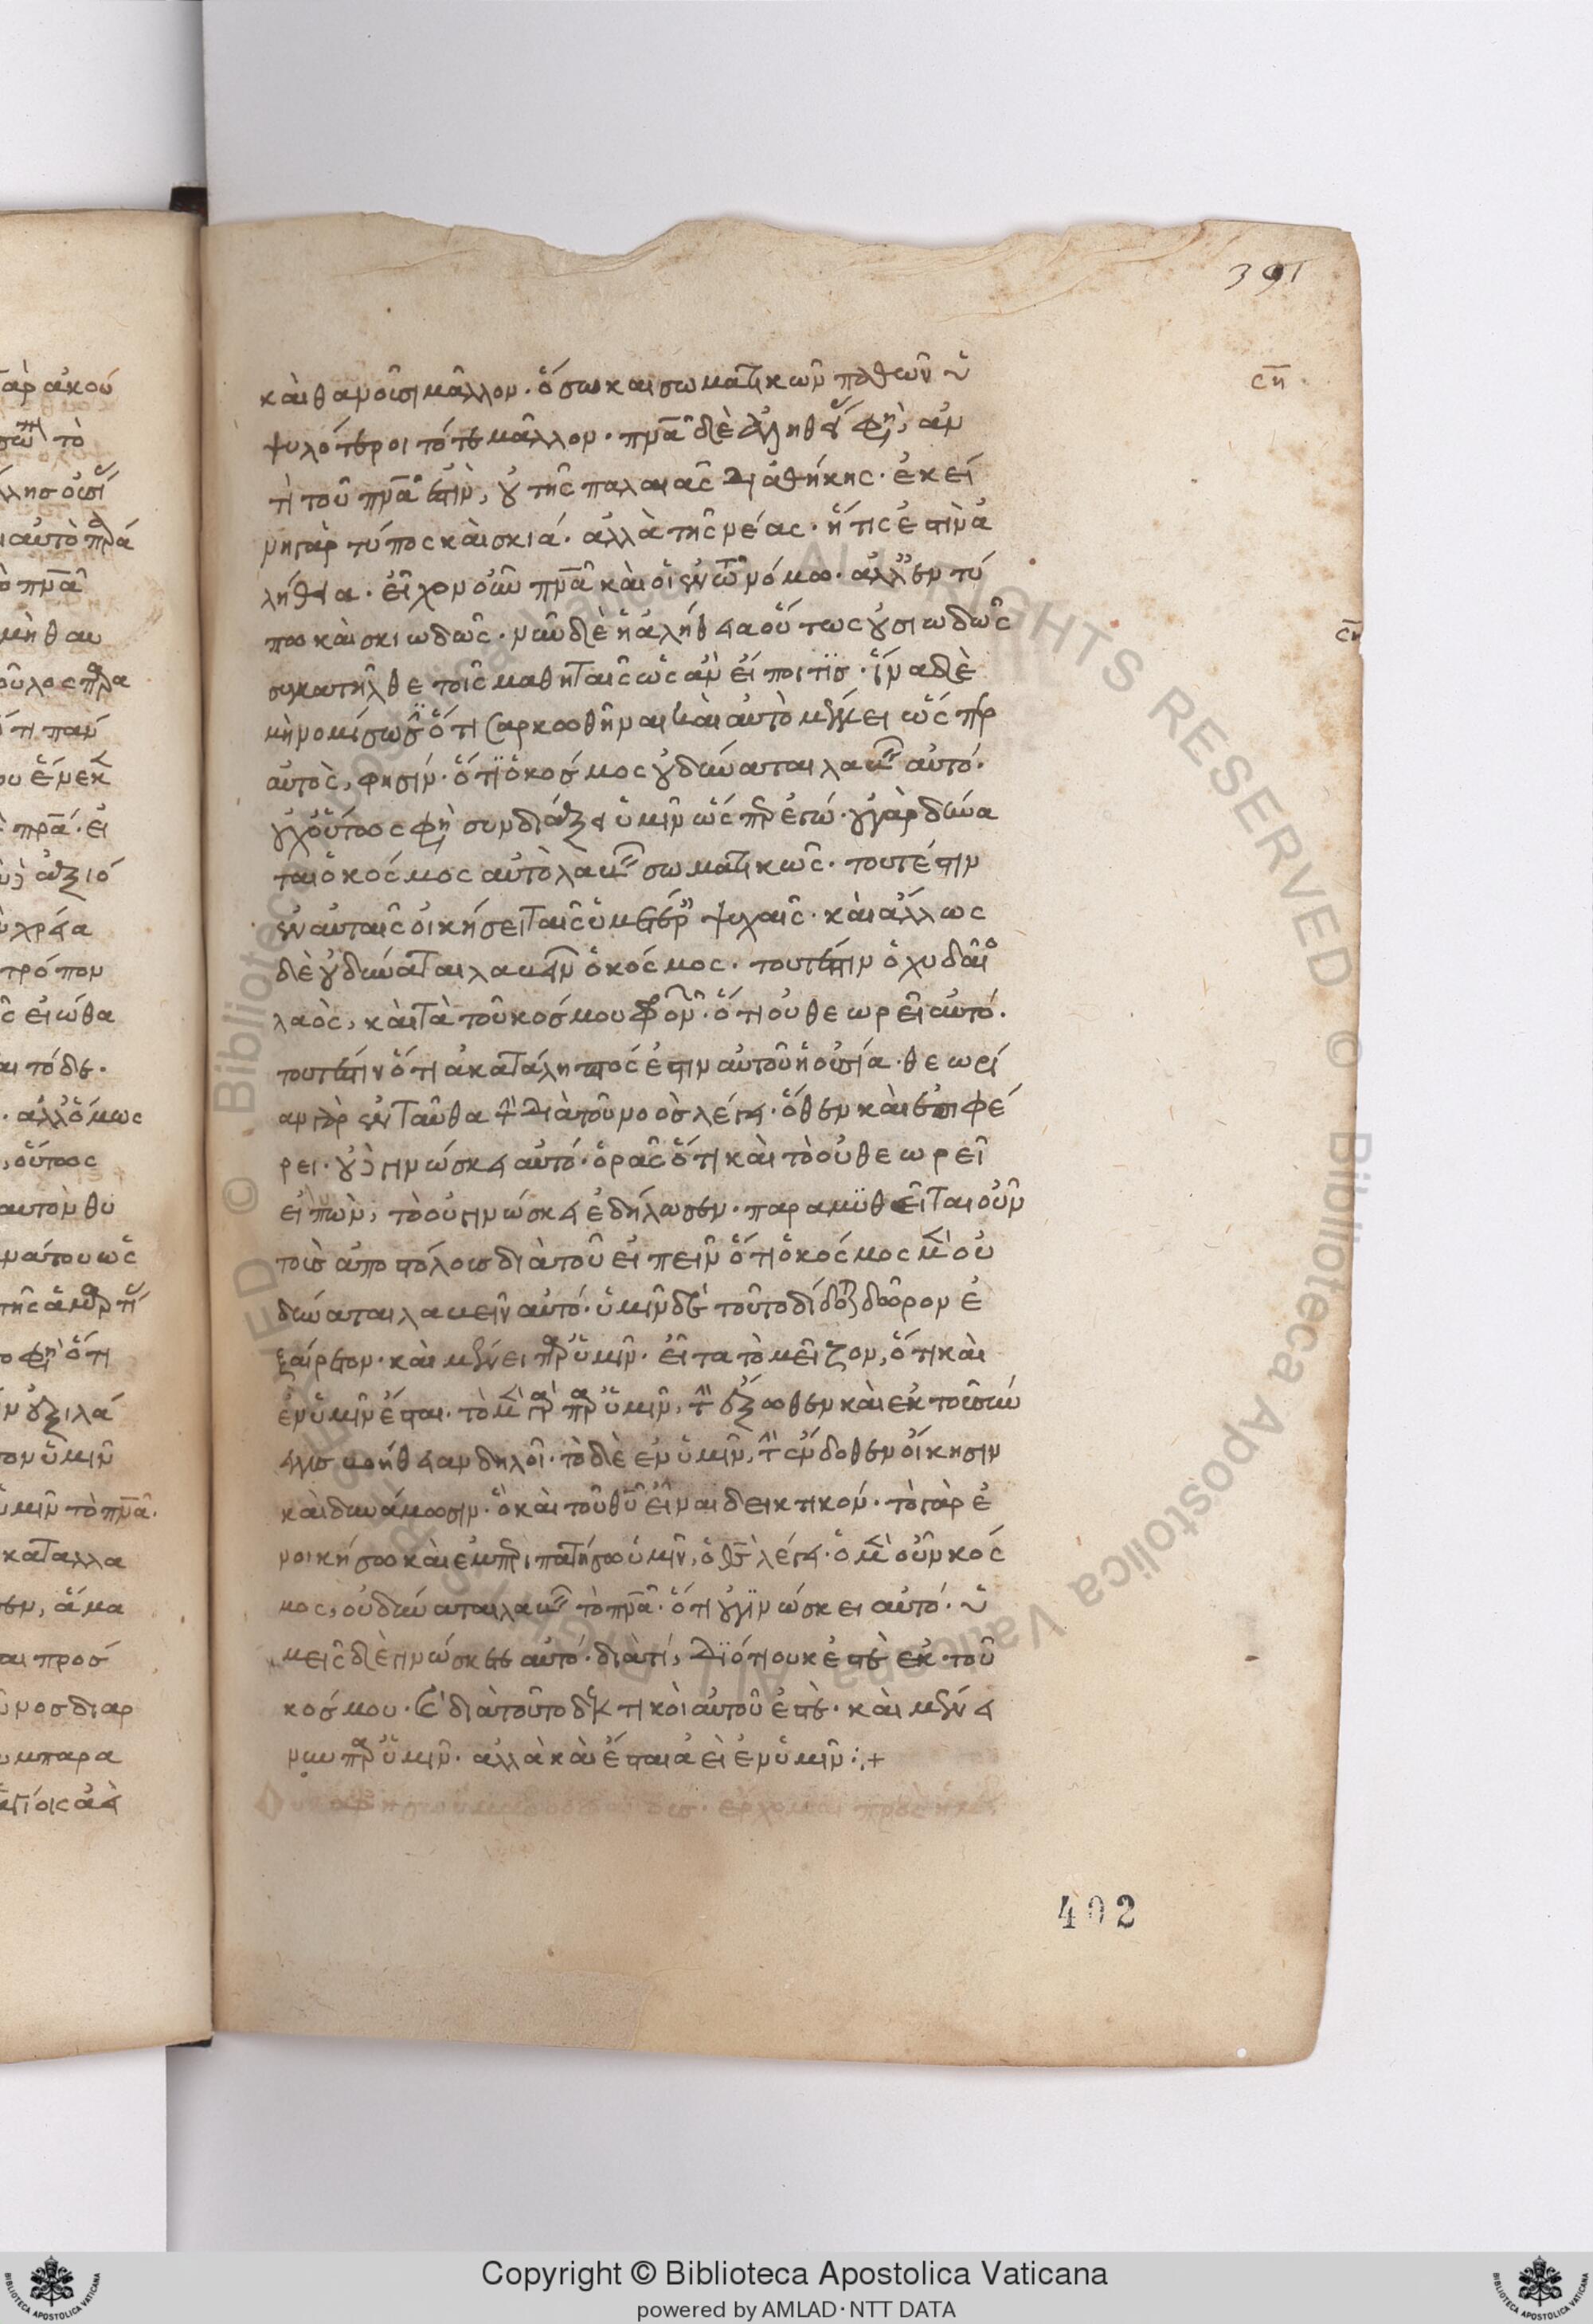 391
ϲη
καὶ θανοῦσι μᾶλλον. ὅσω καὶ σωματικῶν παθῶν ὑ
ψηλότεροι τότε μᾶλλον. πνα δὲ ἀληθείας φη, ἀν
τὶ τοῦ πνα ἐστὶν, οὐ τῆς παλαιᾶς διαθήκης. ἐκεί
νη γὰρ τύπος καὶ σκιά. ἀλλὰ τῆς νέας. ἥτις ἐστὶν ἀ
λήθεια. εἶχον οὖν πνα καὶ οἱ ἐν τῶ νόμω. ἀλλ' ἐν τύ
πω καὶ σκιωδῶς. νῦν δὲ ἡ ἀλήθεια οὕτως οὐσιωδῶς
συγκατῆλθε τοῖς μαθηταῖς ὡς ἂν εἴποι τις. ἵνα δὲ
μὴ νομίσωσιν ὅτι σαρκωθῆναι καὶ αὐτὸ μέλλει ὥσπερ
αὐτὸς, φησίν. ὅτι ὁ κόσμος οὐ δύναται λαβεῖν αὐτό.
οὐχ οὕτως φη συνδιάξει ὑμῖν ὥσπερ ἐγώ. οὐ γὰρ δύνα
ται ὁ κόσμος αὐτὸ λαβεῖν σωματικῶς. τουτέστιν
ἐν αὐταῖς οἰκήσει ταῖς ὑμετέραις ψυχαῖς. καὶ ἄλλως
δὲ οὐ δύναται λαβεῖν ὁ κόσμος. τουτέστιν ὁ χυδαῖος
λαὸς, καὶ τὰ τοῦ κόσμου φρονῶν. ὅτι οὐ θεωρεῖ αὐτό.
τουτέστιν ὅτι ἀκατάληπτός ἐστιν αὐτοῦ ἡ οὐσία. θεωρί
αν γὰρ ἐνταῦθα τὴν διὰ τοῦ νοὸς λέγει. ὅθεν καὶ ἐπιφέ
ρει. οὐδὲ γινώσκει αὐτό. ὁρᾶς ὅτι καὶ τὸ οὐ θεωρεῖ
εἰπὼν, τὸ οὐ γινώσκει ἐδήλωσεν. παραμυθεῖται οὖν
τοὺς ἀποστόλους διὰ τοῦ εἰπεῖν ὅτι ὁ κόσμος μὲν οὐ
δύναται λαβεῖν αὐτό. ὑμῖν δὲ τοῦτο δίδοται δῶρον ἐ
ξαίρετον. καὶ μένει παρ' ὑμῖν. εἶτα τὸ μεῖζον, ὅτι καὶ
ἐν ὑμῖν ἔσται. τὸ μὲν γὰρ παρ' ὑμῖν, τὴν ἔξωθεν καὶ ἐκ τοῦ σύν
εγγυς βοήθειαν δηλοῖ. τὸ δὲ ἐν ὑμῖν, τὴν ἔνδοθεν οἴκησιν
καὶ δυνάμωσιν. ὃ καὶ τοῦ θυ εἶναι δεικτικόν. τὸ γὰρ ἐ
νοικήσω καὶ ἐμπεριπατήσω ὑμῖν, ὁ θς λέγει. ὁ μὲν οὖν κόσ
μος, οὐ δύναται λαβεῖν τὸ πνα. ὅτι οὐ γινώσκει αὐτό. ὑ
μεῖς δὲ γινώσκετε αὐτό. διὰ τί, διότι οὐκ ἐστὲ ἐκ τοῦ
κόσμου. καὶ διὰ τοῦτο δεκτικοὶ αὐτοῦ ἐστέ. καὶ μένει
νῦν παρ' ὑμῖν. ἀλλὰ καὶ ἔσται ἀεὶ ἐν ὑμῖν :+
402
Copyright © Biblioteca Apostolica Vaticana
powered by AMLAD·NTT DATA